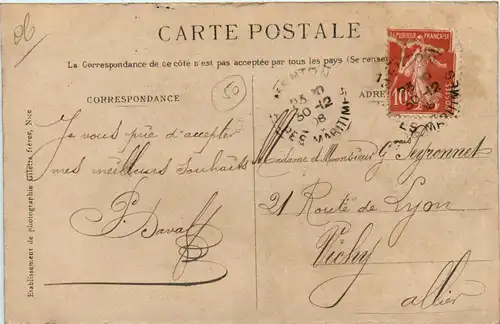 06
CARTE POSTALE
La Correspondance de ce côté n'est pas acceptée par tous les pays (Se rense
50
CORRESPONDANCE
ADRE
MENTON
30-12
08
ALPES MARITIMES
REPUBLIQUE FRANÇAISE
10
30-12
ALPES MARITIMES
Je vous prie d'accepter
mes meilleurs souhaits
P. Davall
Madame et Monsieur Gves Peyronnet
21 Route de Lyon
Vichy
allier
Etablissement de photographie Giletta, frères, Nice